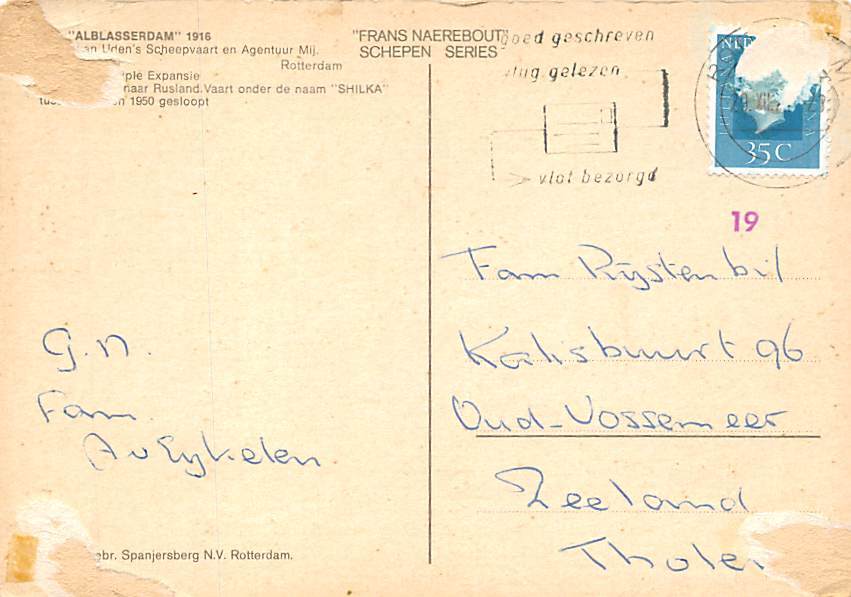 "ALBLASSERDAM" 1916
an Uden's Scheepvaart en Agentuur Mij.
Rotterdam
iple Expansie
naar Rusland. Vaart onder de naam "SHILKA"
1950 gesloopt
"FRANS NAEREBOUT"
SCHEPEN SERIES
goed geschreven
vlug gelezen
vlot bezorgd
NED
35 C
19
Fam Rijstenbil
Kalisbuurt 96
Oud-Vossemeer
Zeeland
Tholen
G.N.
Fam.
A v Eykelen
ebr. Spanjersberg N.V. Rotterdam.